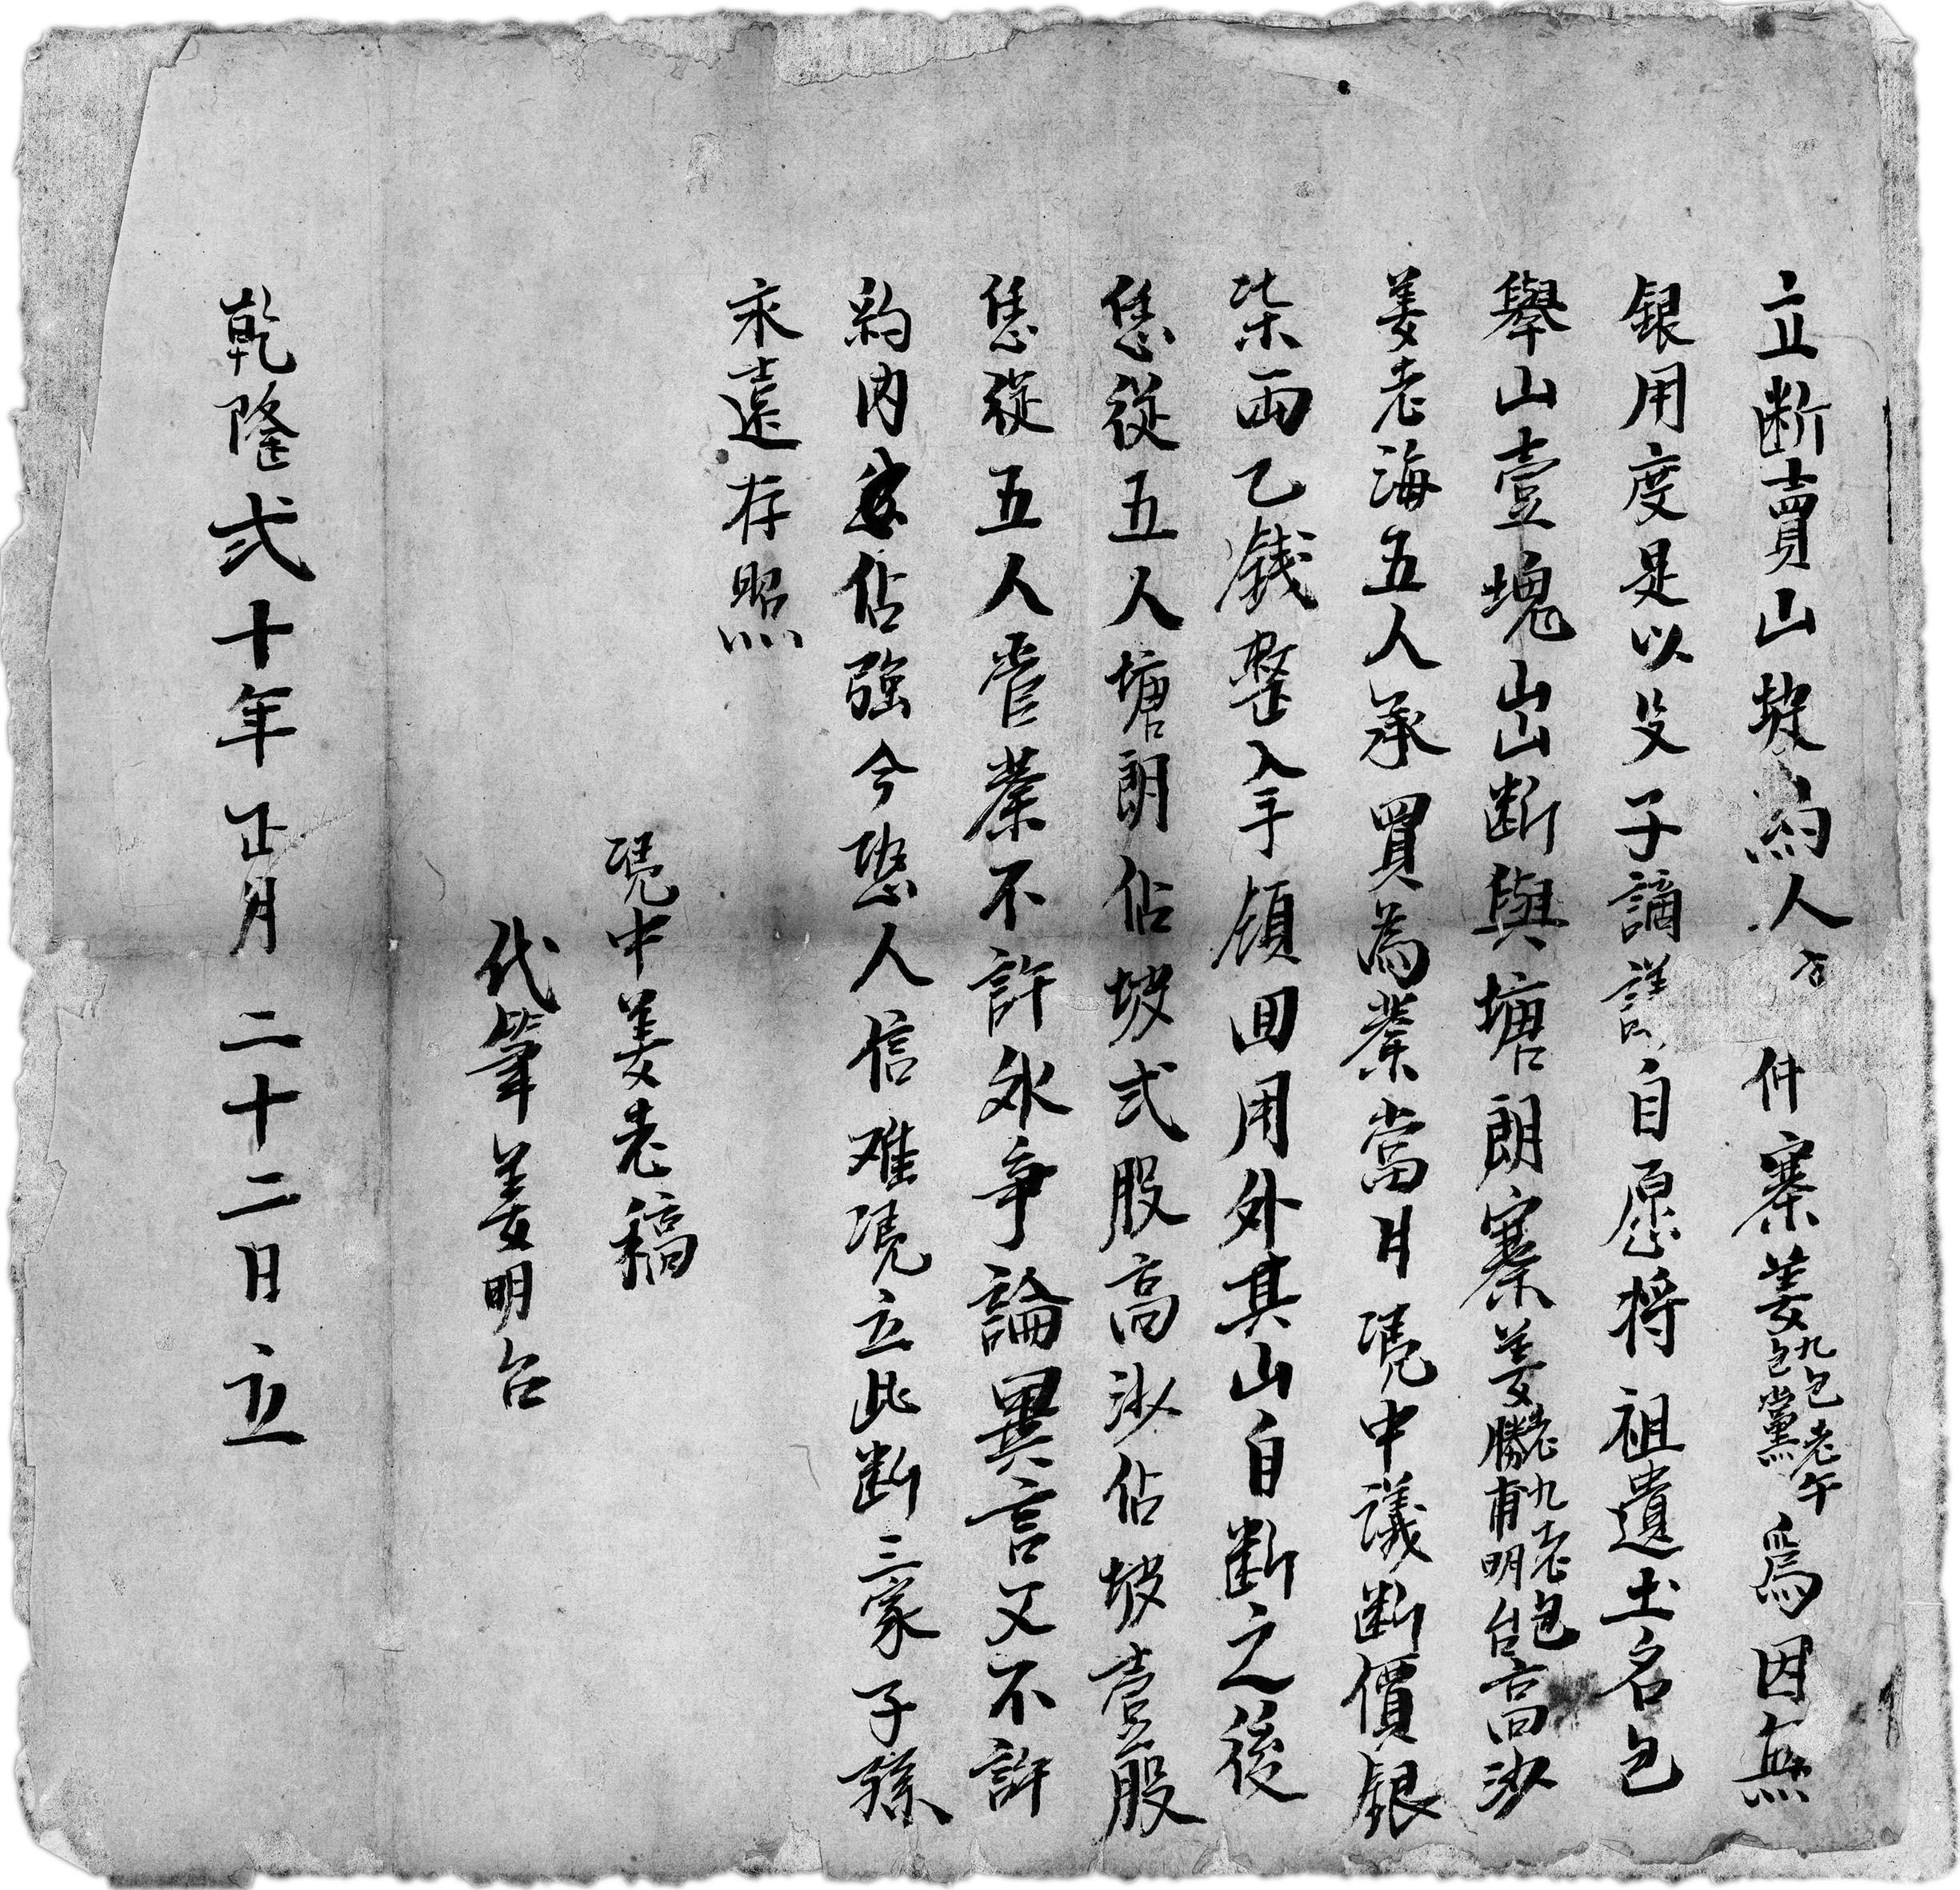 立断賣山坡約人 仲寨姜九包老午包黨為因無
銀用度是以父子謫議自愿将祖遺土名包
舉山壹塊山出断與塘朗寨姜老九老包勝甫明台高沙
姜老海五人承買為業當日凴中議断價銀
柒両乙銭整入手領回用外其山自断之後
恁從五人塘朗佔坡弍股高沙佔坡壹股
恁從五人管業不許氽争論異言又不許
約内佔強今恐人信难凴立此断三家子孫
永遠存照
凴中姜老稿
代筆姜明台
乾隆弍十年正月二十二日立